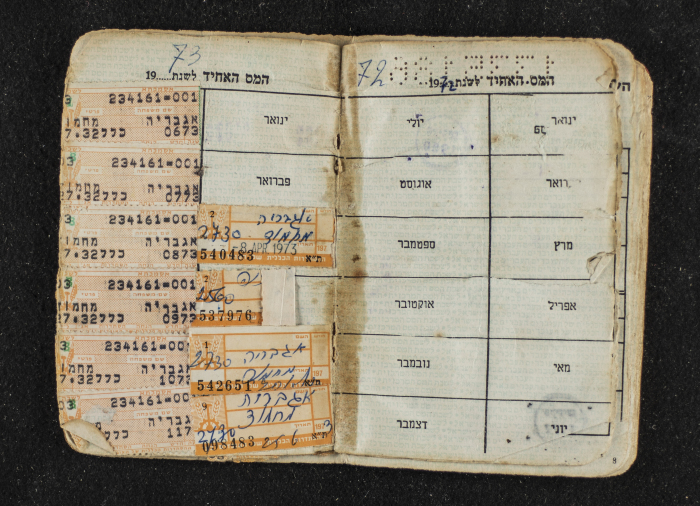 72
המס האחיד לשנת 1972
ינואר
יולי
אוגוסט
מרץ
ספטמבר
אפריל
אוקטובר
מאי
נובמבר
יוני
דצמבר
8
73
המס האחיד לשנת......19
ינואר
פברואר
234161=001
אגבריה מחמו
0673 כלל 7.32
234161=001
אגבריה מחמו
0773
234161=001
אגבריה מחמו
0873 כלל 7.32
234161=001
אגבריה מחמו
0973 כלל 7.32
234161=001
אגבריה מחמו
כלל 7.32
234161=00
אגבריה
117
2
אגבריה
מחמוד
2730
-8 APR 1973
540483 ת"א
2
537976
1
אגבריה
2730
542651
9
מחמוד
2730
098483 ת"א